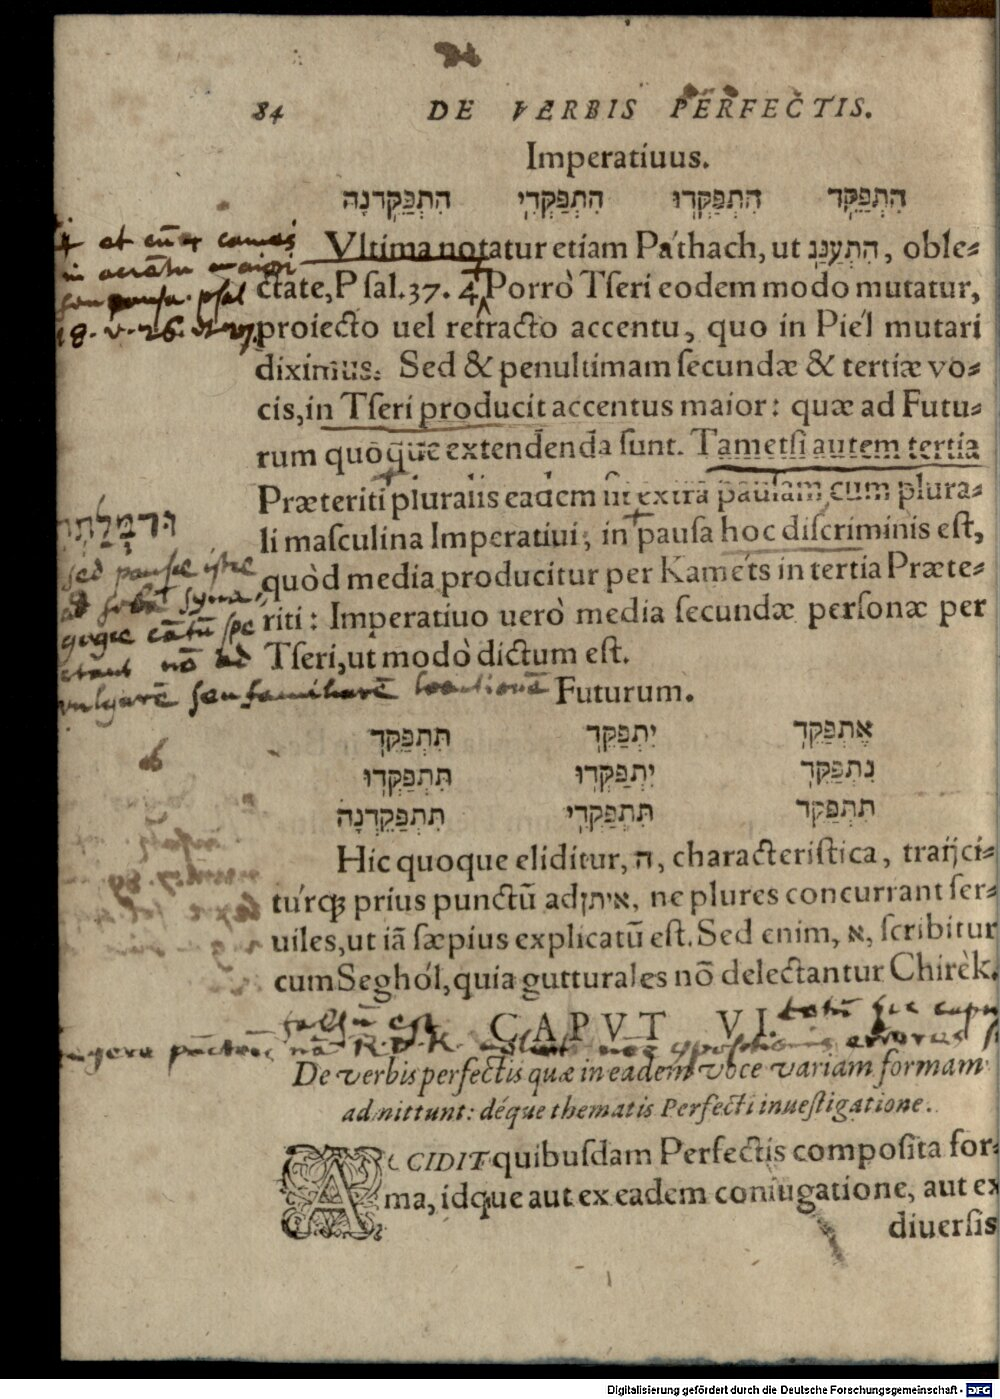 84 DE VERBIS PERFECTIS.
Imperatiuus.
הִתְפַּקֵּד הִתְפַּקְּדוּ הִתְפַּקְּדִי הִתְפַּקֵּדְנָה
et cū camets
in accētu maiori
seu pausa. psal
18. v. 26. et 27.
Vltima notatur etiam Páthach, ut הִתְעַנַּג, oble-
ctate, Psal. 37. 4. Porrò Tseri eodem modo mutatur,
proiecto uel retracto accentu, quo in Piél mutari
diximus. Sed & penultimam secundæ & tertiæ vo-
cis, in Tseri producit accentus maior: quæ ad Futu-
rum quoque extendenda sunt. Tametsi autem tertia
Præteriti pluralis eadem sit extra pausam cum plura-
li masculina Imperatiui, in pausa hoc discriminis est,
quòd media producitur per Kaméts in tertia Præte-
riti: Imperatiuo uerò media secundæ personæ per
Tseri, ut modò dictum est.
sed pausæ istæ
ad solā syna-
gogæ cātū spe
ctant nō ad
vulgarē seu familiarē locutionē
Futurum.
אֶתְפַּקֵּד יִתְפַּקֵּד תִּתְפַּקֵּד
נִתְפַּקֵּד יִתְפַּקְּדוּ תִּתְפַּקְּדוּ
תִּתְפַּקֵּד תִּתְפַּקְּדִי תִּתְפַּקֵּדְנָה
Hic quoque eliditur, ה, characteristica, traijci-
túrq; prius punctū ad איתן, ne plures concurrant ser-
uiles, ut iā sæpius explicatū est. Sed enim, א, scribitur
cum Seghól, quia gutturales nō delectantur Chirèk.
falsū est totū hic caput
CAPVT VI.
nā R. D. K. errores
De verbis perfectis quæ in eadem voce variam formam
admittunt: déque thematis Perfecti inuestigatione.
ACCIDIT quibusdam Perfectis composita for-
ma, idque aut ex eadem coniugatione, aut ex
diuersis
Digitalisierung gefördert durch die Deutsche Forschungsgemeinschaft - DFG